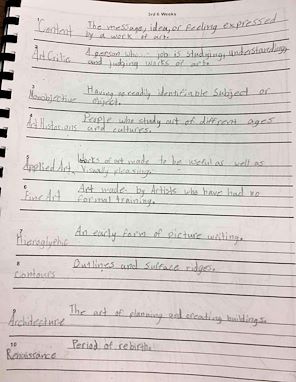 3rd 6 Weeks
1 Content The message, idea, or feeling expressed
by a work of art.
2 Art Critic A person who job is studying, understanding,
and judging works of art.
3 Nonobjective Having no readily identifiable subject or
object.
4 Art Historians People who study art of different ages
and cultures.
5 Applied Art Works of art made to be useful as well as
visually pleasing.
6 Fine Art Art made by Artists who have had no
formal training.
7 Hieroglyphic An early form of picture writing.
8 Contours Outlines and surface ridges.
9 Architecture The art of planning and creating buildings.
10 Renaissance Period of rebirth.